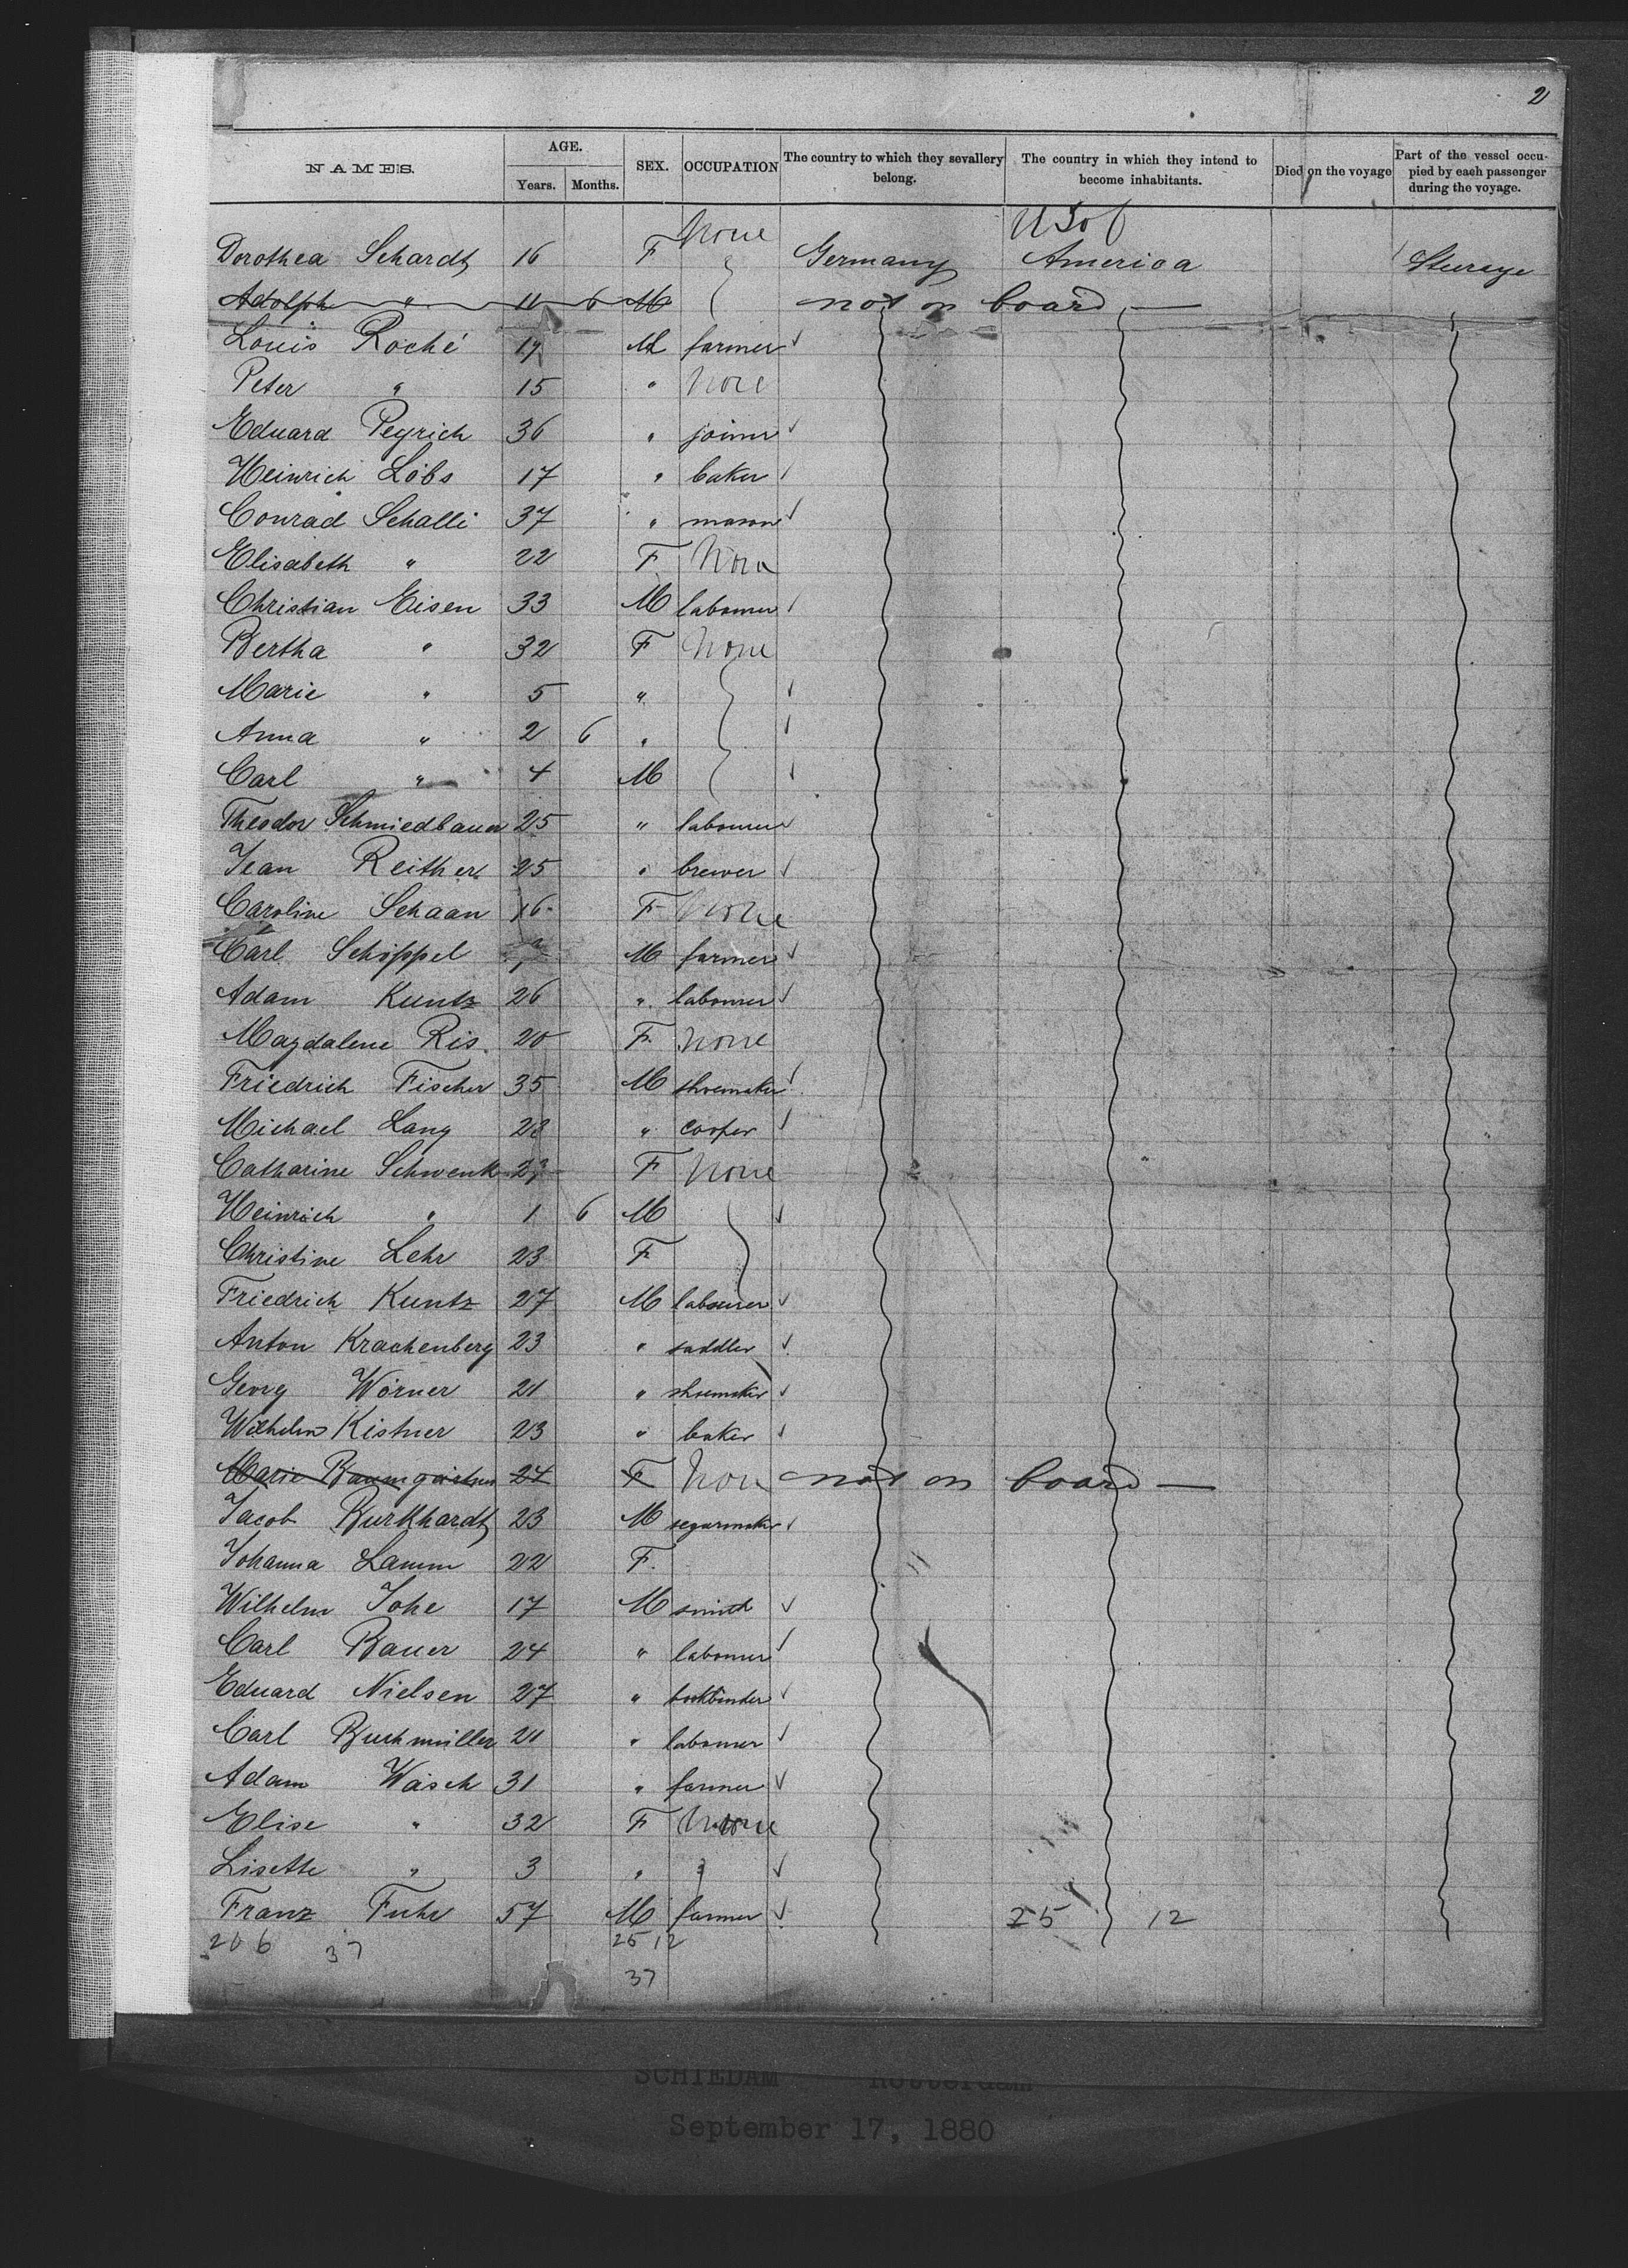 2
NAMES. AGE. Years. Months. SEX. OCCUPATION The country to which they sevallery belong. The country in which they intend to become inhabitants. Died on the voyage Part of the vessel occupied by each passenger during the voyage.
None USof
Dorothea Schardt 16 F Germany America Steerage
Adolph " 11 6 M not on board —
Louis Roché 17 M farmer
Peter " 15 " None
Eduard Peyrich 36 " joiner
Heinrich Löbs 17 " baker
Conrad Schalli 37 " mason
Elisabeth " 22 F None
Christian Eisen 33 M labourer
Bertha " 32 F None
Marie " 5 "
Anna " 2 6 "
Carl " 4 M
Theodor Schmiedbauer 25 " labourer
Jean Reither 25 " brewer
Caroline Schaan 16 F None
Carl Schöppel M farmer
Adam Kuntz 26 " labourer
Magdalene Ris 20 F None
Friedrich Fischer 35 M shoemaker
Michael Lang 28 " cooper
Catharine Schwenk F None
Heinrich " 1 6 M
Christine Lehr 23 F
Friedrich Kuntz 27 M labourer
Anton Krachenberg 23 " saddler
Georg Wörner 21 " shoemaker
Wilhelm Kistner 23 " baker
Marie Baumgärtner 24 F None not on board —
Jacob Burkhardt 23 M segarmaker
Johanna Lamm 22 F.
Wilhelm Johe 17 M smith
Carl Bauer 24 " labourer
Eduard Nielsen 27 " bookbinder
Carl Buchmüller 21 " labourer
Adam Wäsch 31 " farmer
Elise " 32 F None
Lisette " 3 " "
Franz Fuhr 57 M farmer 25 12
206 37 25 12
37
SCHIEDAM Rotterdam
September 17, 1880